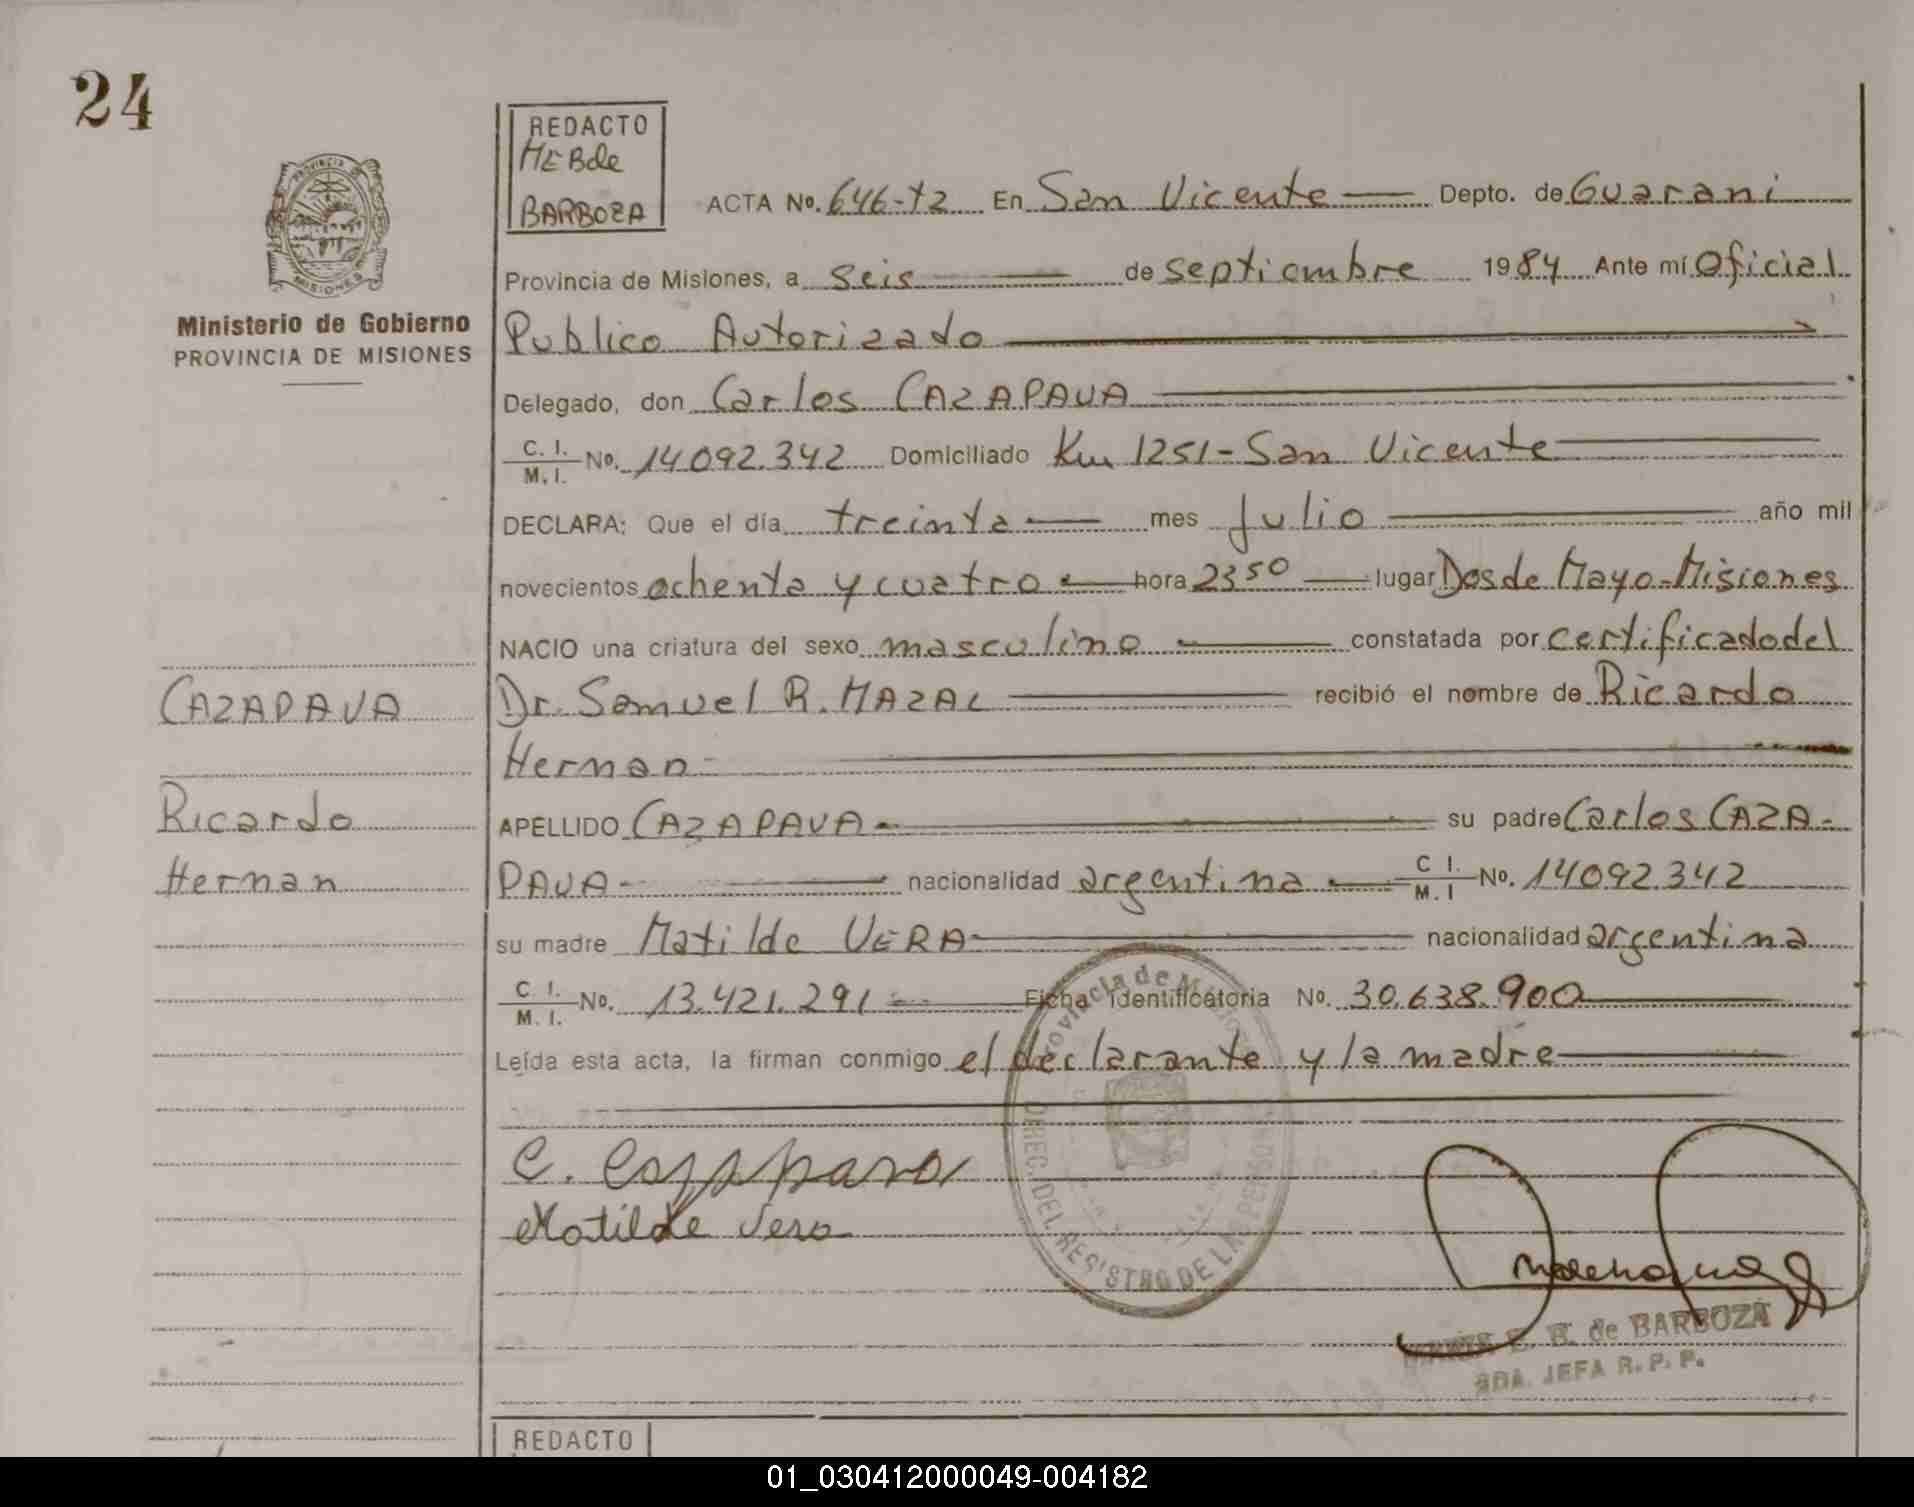 24
REDACTO
MEBde
BARBOZA
PROVINCIA DE
MISIONES
Ministerio de Gobierno
PROVINCIA DE MISIONES
ACTA No. 646-t2 En San Vicente Depto. de Guarani
Provincia de Misiones, a seis de septiembre 1984 Ante mí Oficial
Publico Autorizado
Delegado, don Carlos CAZAPAVA
C. I. / M. I. No. 14092.342 Domiciliado Km 1251-San Vicente
DECLARA: Que el día treinta mes Julio año mil
novecientos ochenta y cuatro hora 23 50 lugar Dos de Mayo-Misiones
NACIO una criatura del sexo masculino constatada por certificado del
Dr. Samuel R. MAZAL recibió el nombre de Ricardo
Hernan
APELLIDO CAZAPAVA su padre Carlos CAZA-
PAVA nacionalidad argentina C I. / M. I No. 14092342
su madre Matilde VERA nacionalidad argentina
C I. / M. I. No. 13.421.291 Ficha identificatoria No. 30.638.900
Leída esta acta, la firman conmigo el declarante y la madre
CAZAPAVA
Ricardo
Hernan
C. Cazapava
Matilde Vera
Provincia de Misiones
DIREC. DEL REGISTRO DE LAS PERSONAS
E. B. de BARBOZA
2DA. JEFA R. P. P.
REDACTO
01_030412000049-004182